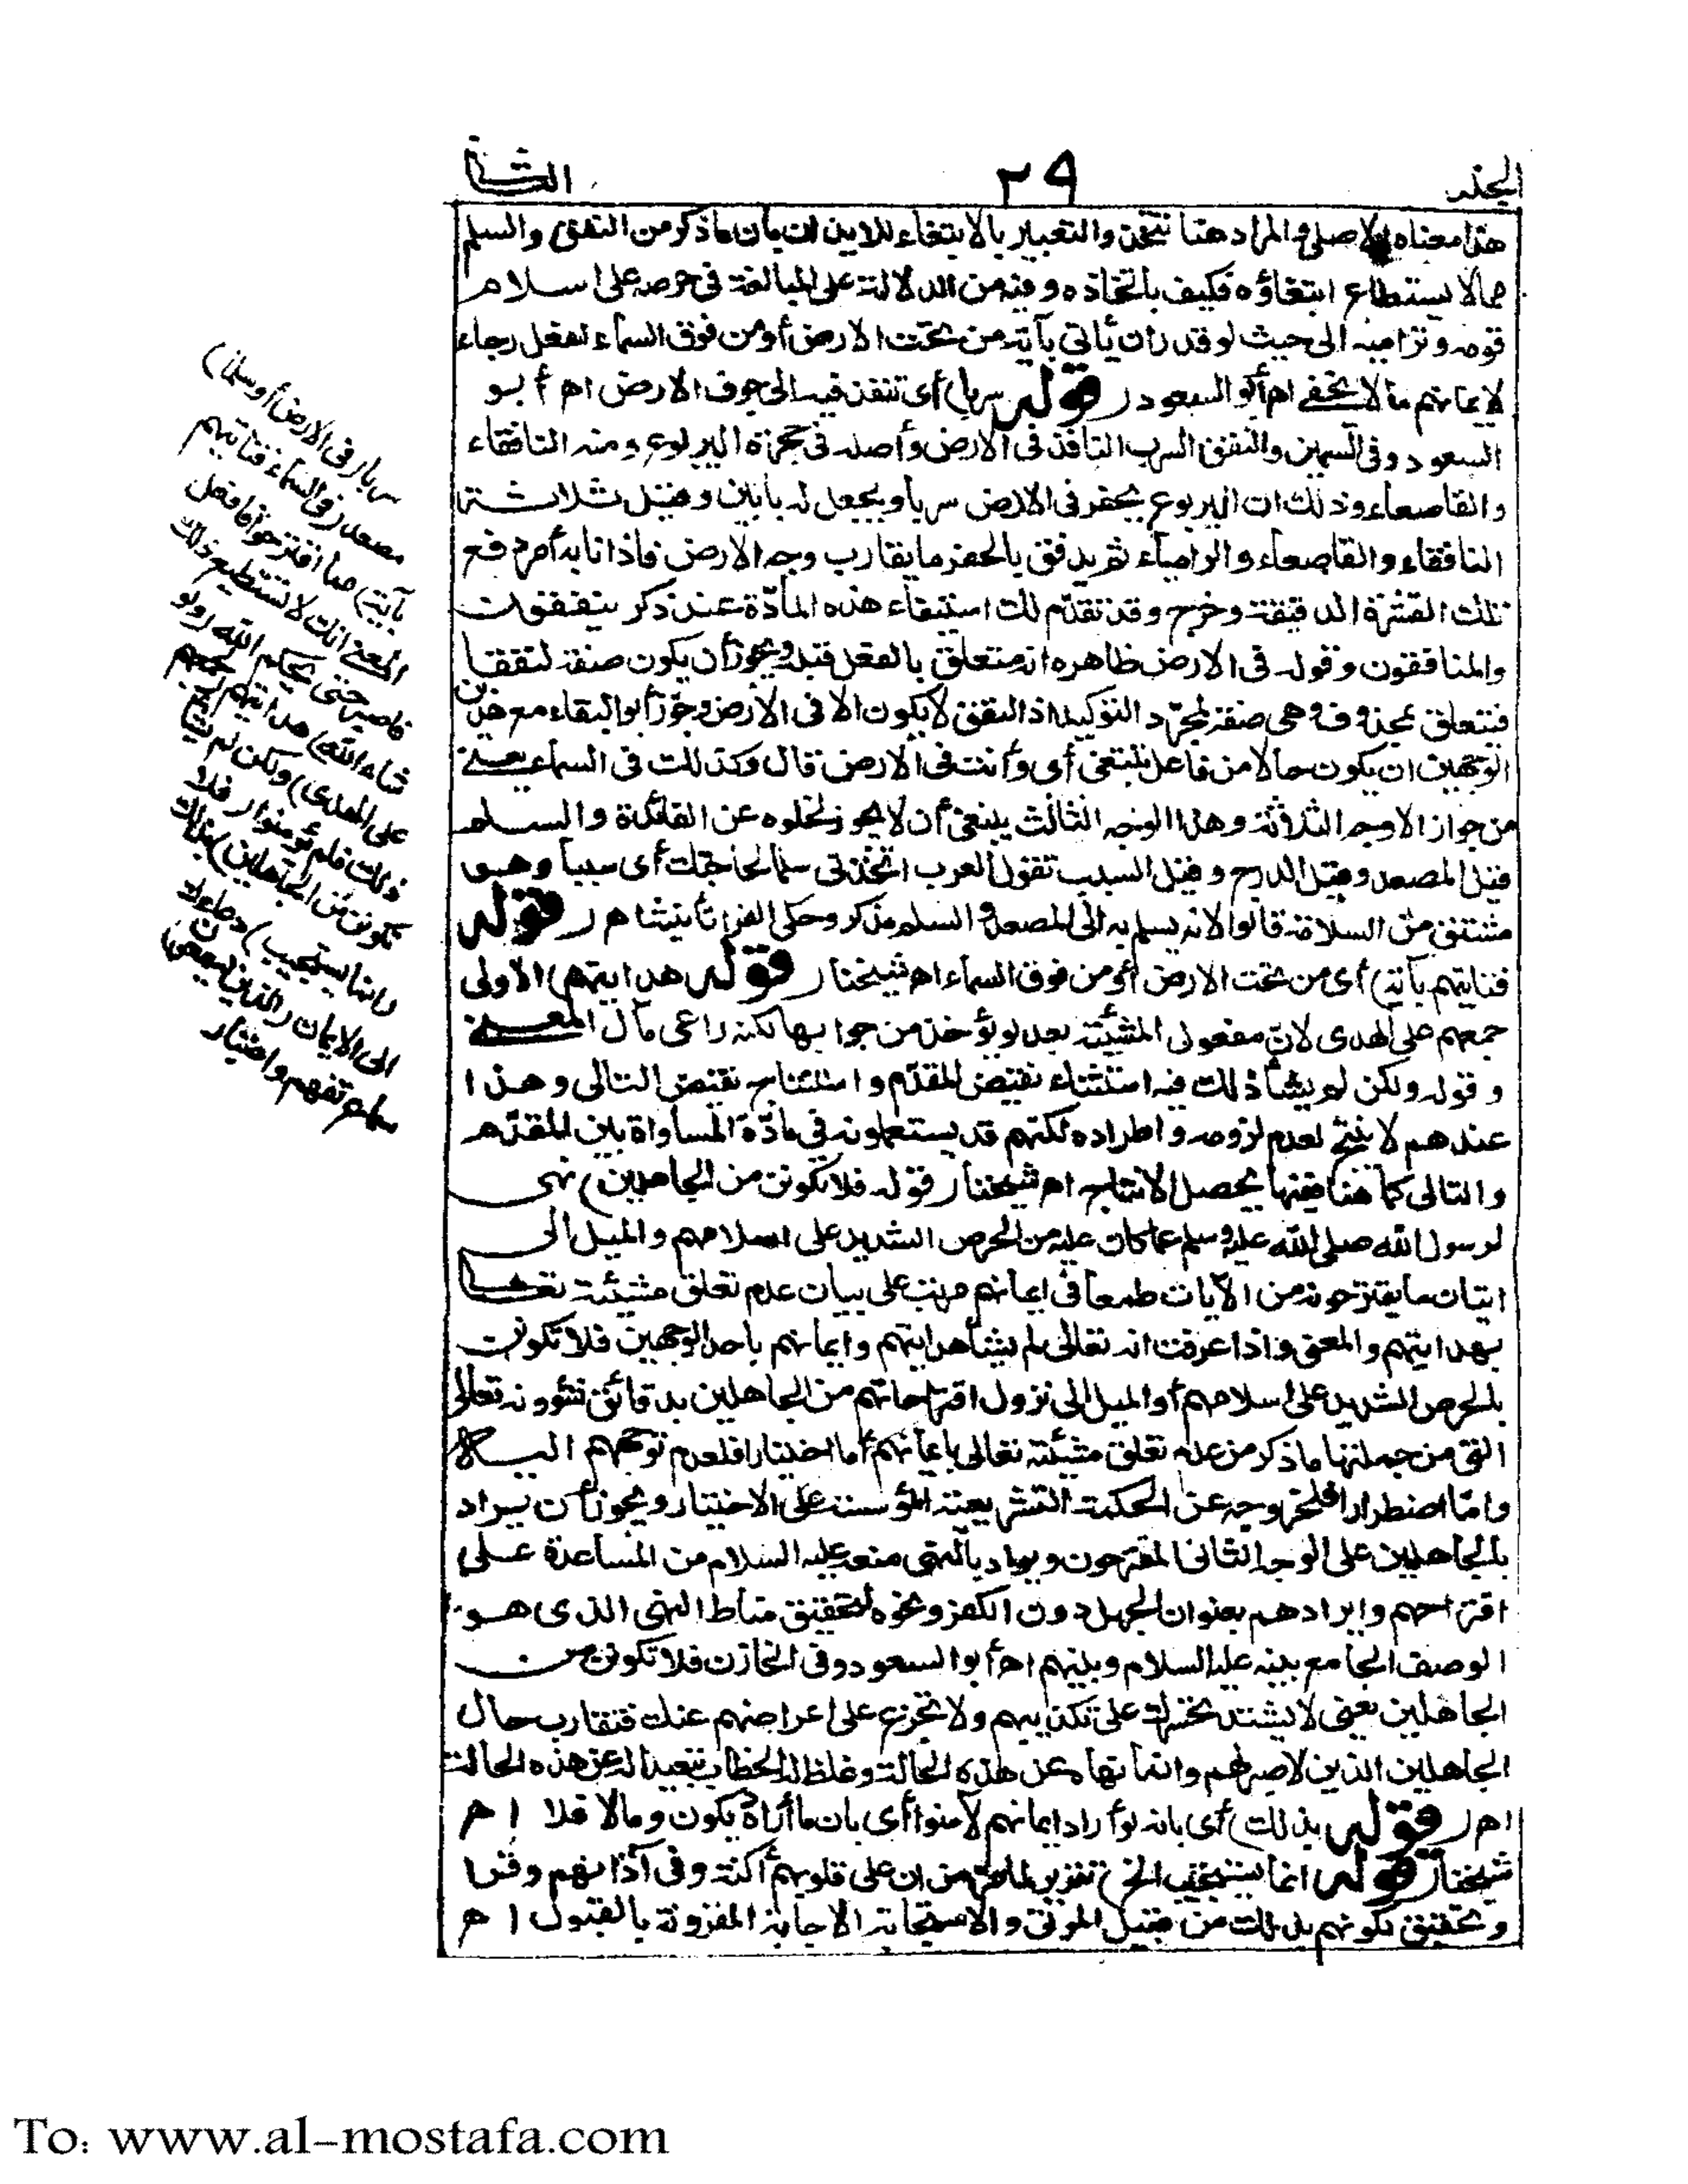 الجزء
٢٩
الثانى
هذا معناه الاصلى والمراد هنا تتخذ والتعبير بالابتغاء للايذان بأن ماذكر من النفق والسلم
مما لا يستطاع ابتغاؤه فكيف باتخاذه وفيه من الدلالة على المبالغة فى حرصه على اسلام
قومه وتراميه الى حيث لو قدر ان يأتى بآية من تحت الارض أو من فوق السماء لفعل رجاء
لايمانهم ما لا يخفى اه أبو السعود ( قوله سربا) أى تنفذ فيه الى جوف الارض اه أبو
السعود وفى السمين والنفق السرب النافذ فى الارض وأصله فى جحرة اليربوع ومنه النافقاء
والقاصعاء وذلك ان اليربوع يحفر فى الارض سربا ويجعل له بابين وقيل ثلاثة
النافقاء والقاصعاء والراهطاء ثم يدقق بالحفر ما يقارب وجه الارض فاذا نابه أمر دفع
تلك القشرة الدقيقة وخرج وقد تقدم لك استيفاء هذه المادّة عند ذكر ينفقون
والمنافقون وقوله فى الارض ظاهره انه متعلق بالفعل قبله ويجوز أن يكون صفة لنفقا
فيتعلق بمحذوف وهى صفة لمجرّد التوكيد اذ النفق لا يكون الا فى الارض وجوّز أبو البقاء مع هذين
الوجهين ان يكون حالا من فاعل تبتغى أى وأنت فى الارض قال وكذلك فى السماء يعنى
من جواز الاوجه الثلاثة وهذا الوجه الثالث ينبغى أن لا يجوز لخلوه عن الفائدة والسلم
قيل المصعد وقيل الدرج وقيل السبب تقول العرب اتخذنى سلما لحاجتك أى سببا وهو
مشتق من السلامة قالوا لانه يسلم به الى المصعد والسلم مذكر وحكى الفرا تأنيثه اه ( قوله
فتاتيهم بآية) أى من تحت الارض أو من فوق السماء اه شيخنا ( قوله هدايتهم) الأولى
جمعهم على الهدى لانّ مفعول المشيئة بعد لو يؤخذ من جوابها لكنه راعى مآل المعنى
وقوله ولكن لم يشأ ذلك فيه استثناء نقيض المقدّم واستنتاج نقيض التالى وهذا
عندهم لا ينتج لعدم لزومه واطراده لكنهم قد يستعملونه فى مادّة المساواة بين المقدّم
والتالى كما هنا فيها يحصل الانتاج اه شيخنا ( قوله فلا تكونن من الجاهلين) نهى
لرسول الله صلى الله عليه وسلم عما كان عليه من الحرص الشديد على اسلامهم والميل الى
ايتان ما يقترحونه من الآيات طمعا فى ايمانهم مرتب على بيان عدم تعلق مشيئته تعالى
بهدايتهم والمعنى واذا عرفت انه تعالى لم يشأ هدايتهم وايمانهم باحد الوجهين فلا تكونن
بالحرص الشديد على اسلامهم أو الميل الى نزول اقتراحاتهم من الجاهلين بدقائق شؤونه تعالى
التى من جملتها ما ذكر من عدم تعلق مشيئته تعالى بايمانهم أما اختيارا فلعدم توجههم اليه
وامّا اضطرارا فلخروجه عن الحكمة التشريعية المؤسسة على الاختيار ويجوز أن يراد
بالجاهلين على الوجه الثانى المقترحون ويراد بالنهى منعه عليه السلام من المساعدة على
اقتراحهم وايرادهم بعنوان الجهل دون الكفر ونحوه لتحقيق مناط النهى الذى هو
الوصف الجامع بينه عليه السلام وبينهم اه أبو السعود وفى الخازن فلا تكونن من
الجاهلين يعنى لا يشتد تحسرك على تكذيبهم ولا تجزع على اعراضهم عنك فتقارب حال
الجاهلين الذين لا صبر لهم وانما نهاه عن هذه الحالة وغلظ له الخطاب تبعيدا له عن هذه الحالة
اه ( قوله بذلك) أى بانه لو أراد ايمانهم لآمنوا أى بان ما أراده يكون وما لا فلا اه
شيخنا ( قوله انما يستجيب الخ) تقرير لما مرّ من ان على قلوبهم أكنة وفى آذانهم وقرا
وتحقيق لكونهم بذلك من قبيل الموتى والاستجابة الاجابة المقرونة بالقبول اه
سربا (فى الارض أو سلما)
مصعدا (فى السماء فتاتيهم
بآية) مما اقترحوا فافعل
المعنى انك لا تستطيع ذلك
فاصبر حتى يحكم الله (ولو
شاء الله) هدايتهم (لجمعهم
على الهدى) ولكن لم يشأ
ذلك فلم يؤمنوا (فلا
تكونن من الجاهلين) بذلك
(انما يستجيب) دعاءك
الى الايمان (الذين يسمعون)
سماع تفهم واعتبار
To: www.al-mostafa.com